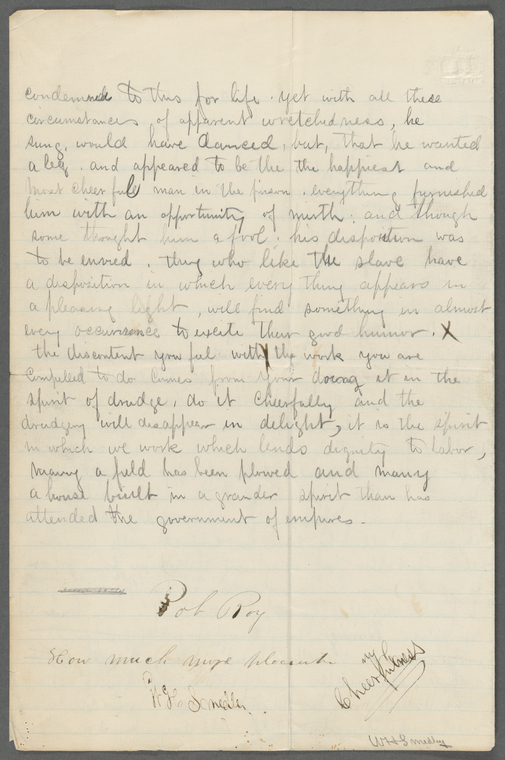 condemned to this for life. yet with all these
circumstances of apparent wretchedness, he
sung, would have danced, but, that he wanted
a leg. and appeared to be the the happiest and
most cheerful man in the prison. everything furnished
him with an opportunity of mirth; and though
some thought him a fool; his disposition was
to be envied. they who like the slave have
a disposition in which every thing appears in
a pleasing light, will find something in almost
every occurrence to excite their good humor. X
the discontent you feel with the work you are
compelled to do comes from your doing it in the
spirit of drudge, do it cheerfully and the
drudgery will disappear in delight, it is the spirit
in which we work which lends dignity to labor,
many a field has been plowed and many
a house built in a grander spirit than has
attended the government of empires.
Rob Roy
How much more pleasant
my
Cheerfulness
W H Smedley
W H Smedley